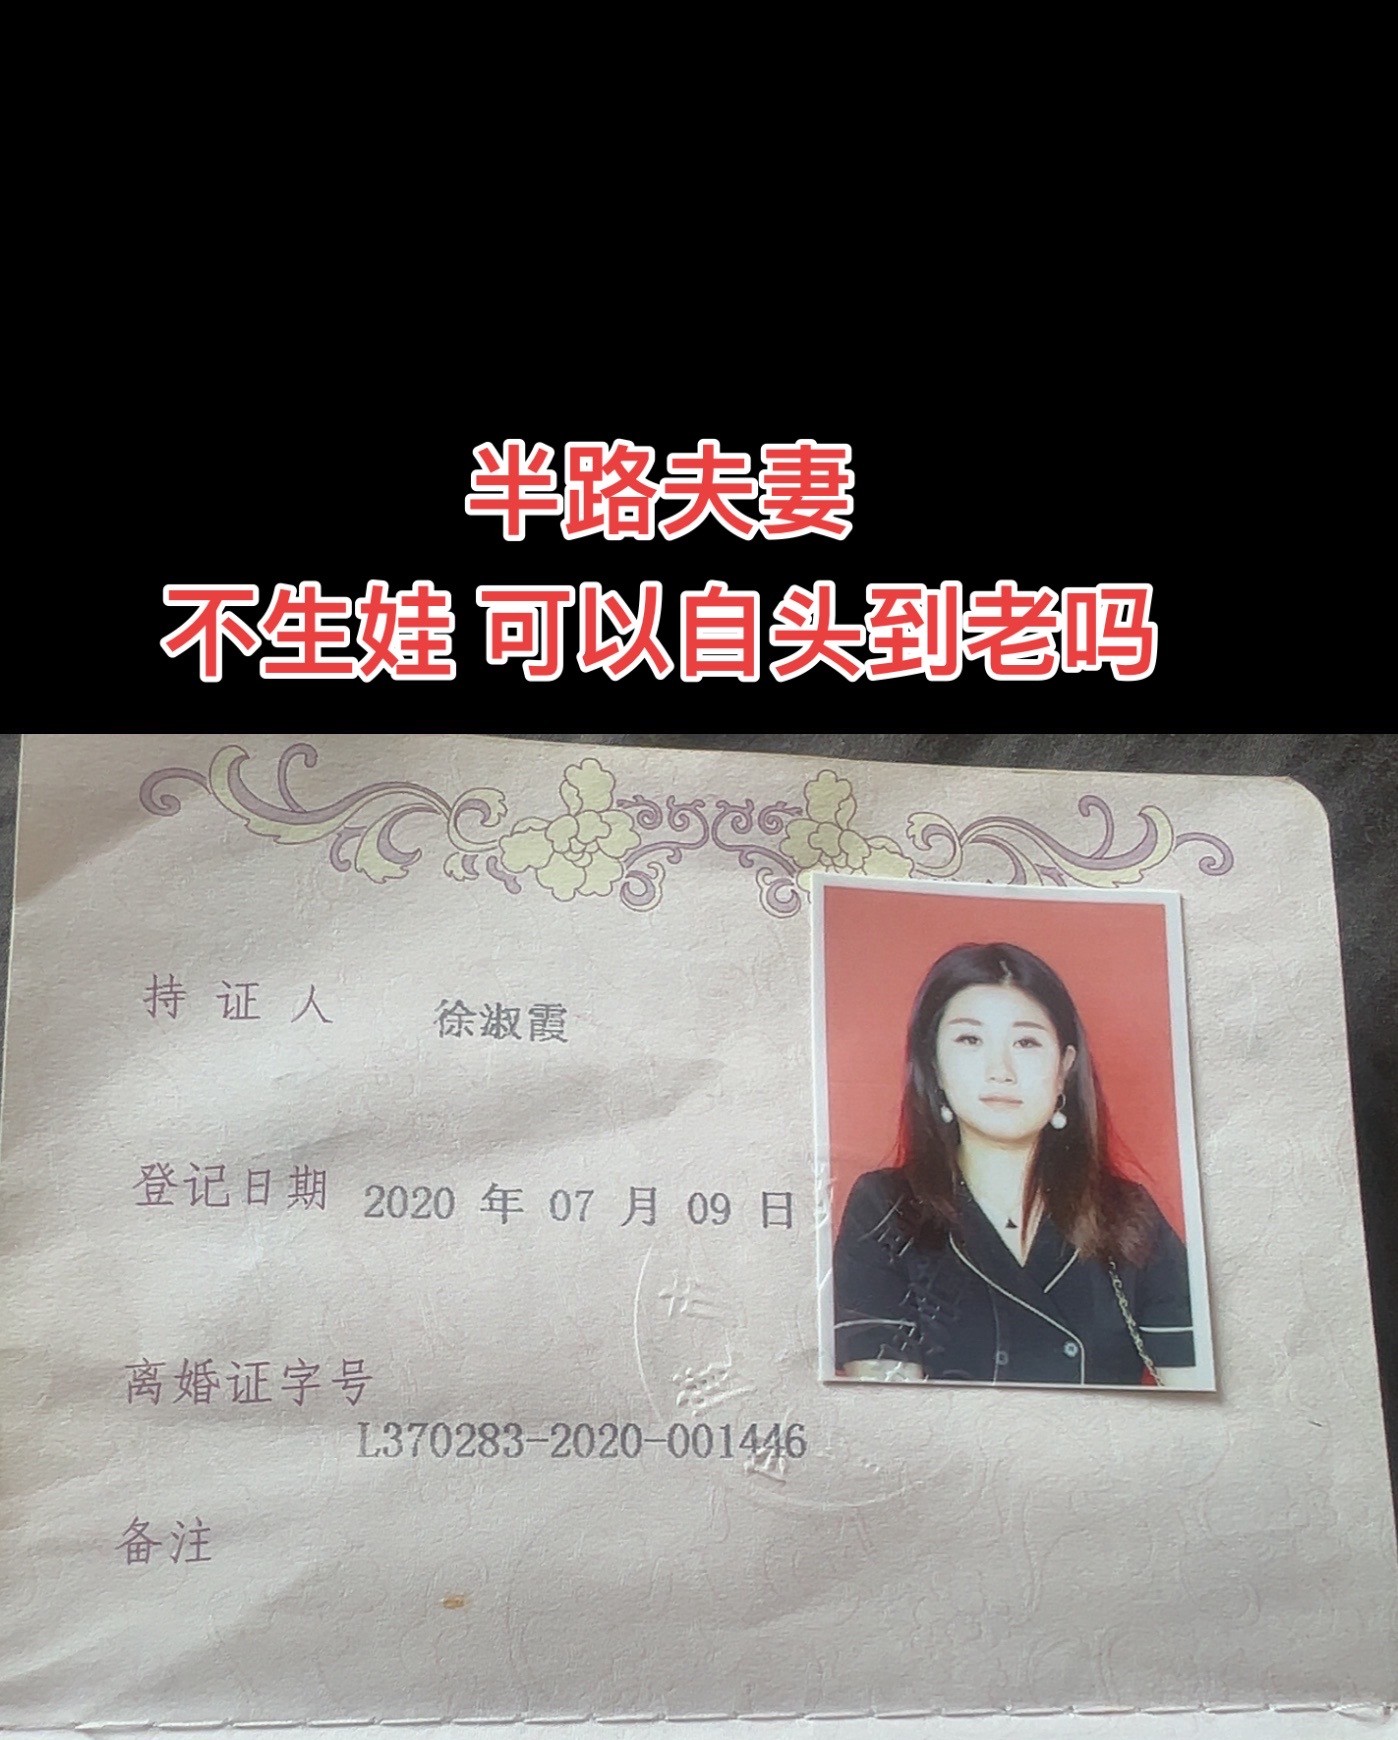 半路夫妻
不生娃 可以自头到老吗
持证人 徐淑霞
登记日期 2020 年 07 月 09 日
离婚证字号
L370283-2020-001446
备注